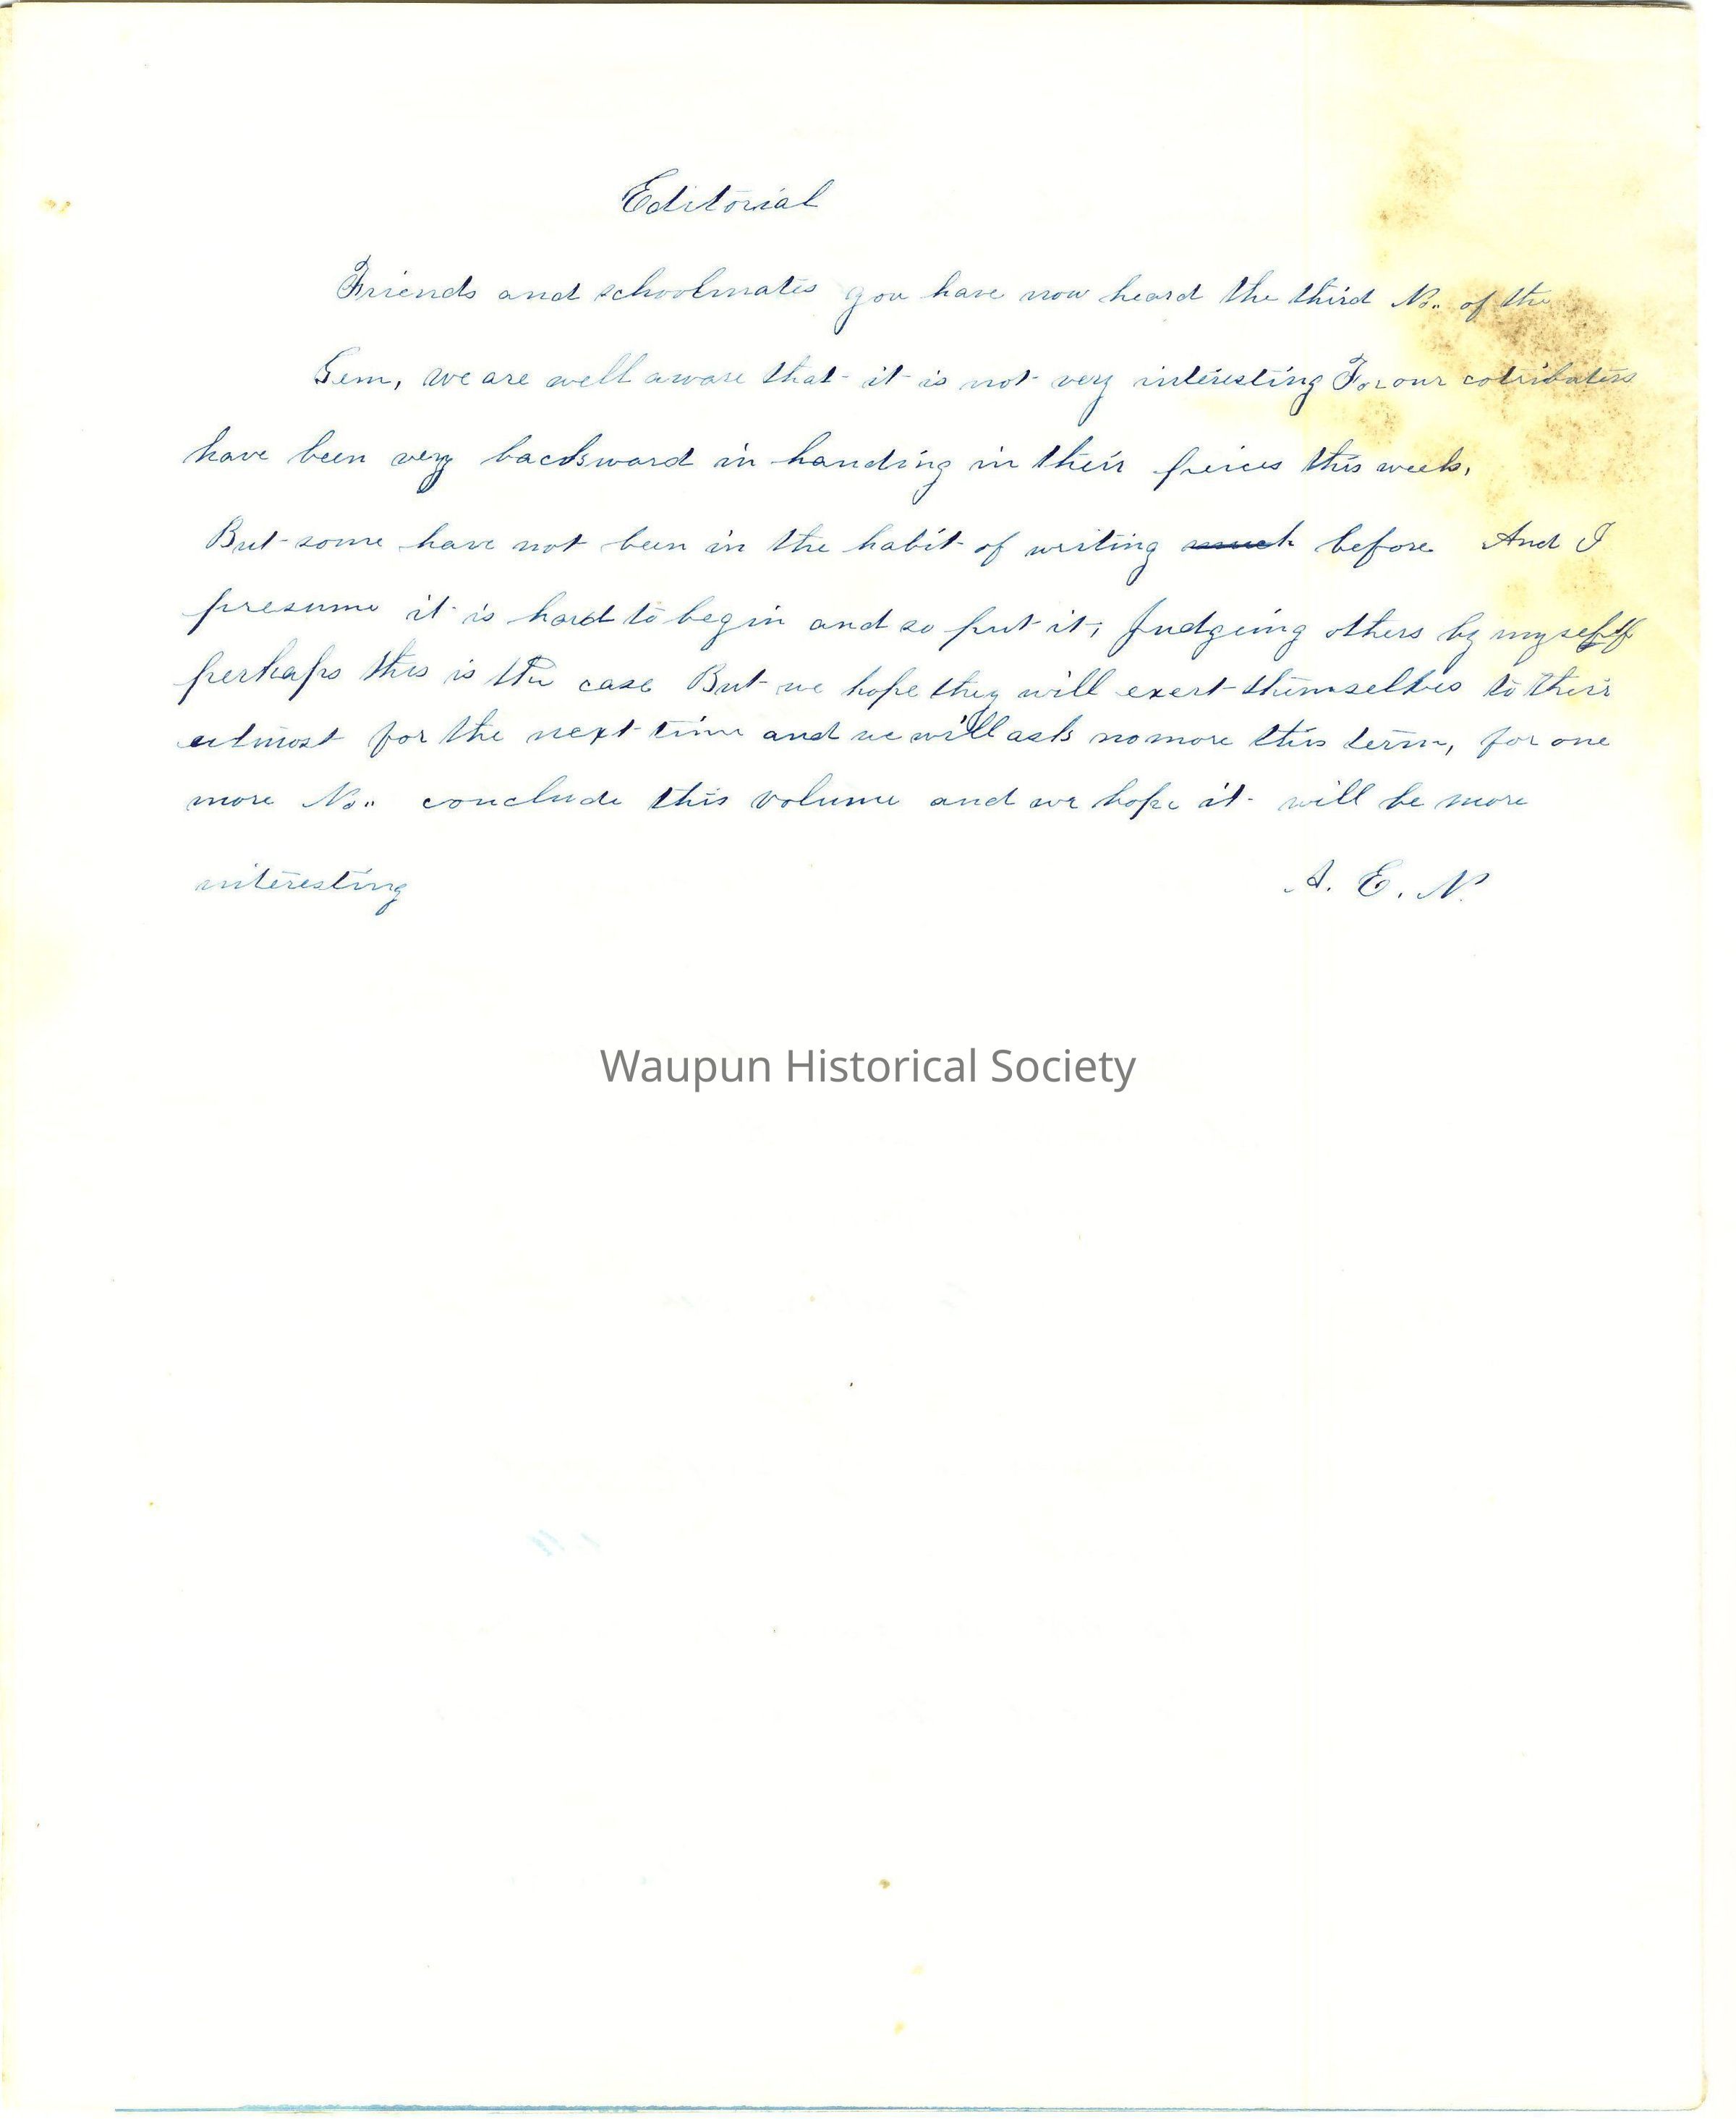 Editorial
Friends and schoolmates you have now heard the third No.. of the
Gem, we are well aware that it is not very interesting For our cotributers
have been very backsward in handing in their peices this week,
But some have not been in the habit of writing much before And I
presume it is hard to begin and so put it, Judgeing others by myself
perhaps this is the case But we hope they will exert themselves to their
utmost for the next time and we will ask no more this term, for one
more No.. conclude this volume and we hope it will be more
interesting A. E. N.
Waupun Historical Society